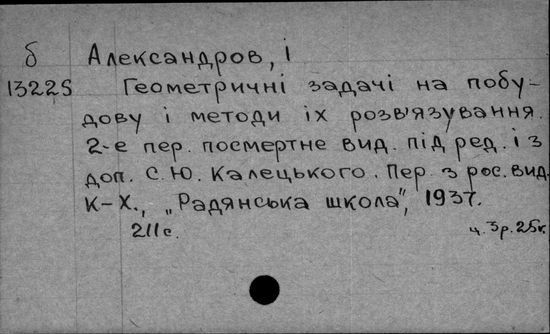 б Александров, І
13225 Геометричні задачі на побу-
дову і методи їх розв'язування.
2-е пер. посмертне вид. під ред. і з
доп. С.Ю. Калецького. Пер. з рос. вид.
К-Х., „Радянська школа", 1937.
211с. ц. 3р. 25к.